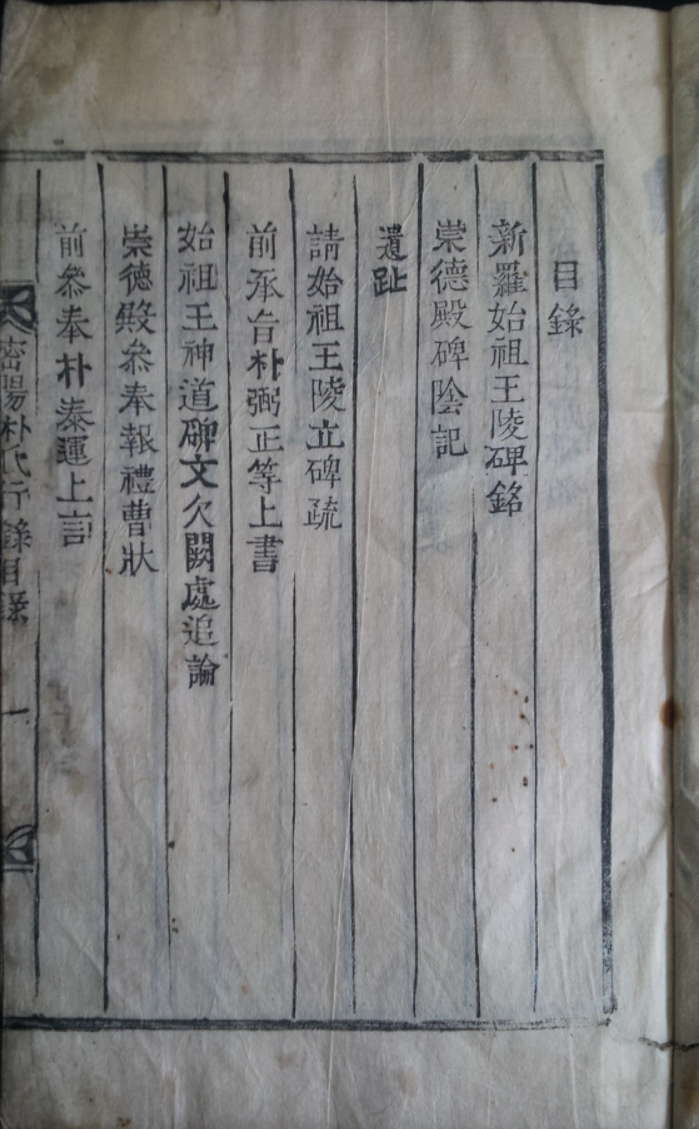 目錄
新羅始祖王陵碑銘
崇德殿碑陰記
遺趾
請始祖王陵立碑疏
前承旨朴弼正等上書
始祖王神道碑文欠闕處追論
崇德殿叅奉報禮曹狀
前叅奉朴泰運上言
密陽朴氏行錄目錄 一